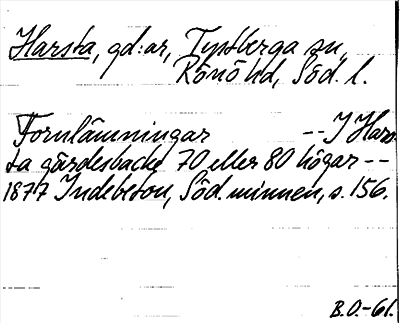 Harsta, gd:ar, Tystberga sn,
Rönö hd, Söd. l.
Fornlämningar -- I Hars
ta gärdesbacke 70 eller 80 högar --
1877 Indebetou, Söd. minnen, s. 156.
B.O.-61.